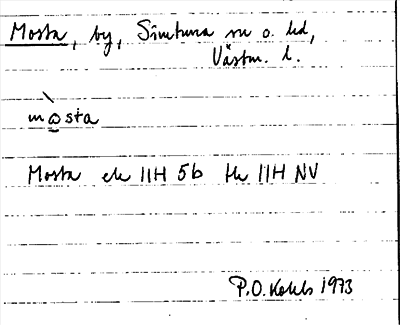 Mosta, by, Simtuna sn o. hd,
Västm. l.
mòsta
Mosta ek 11H 5b tk 11H NV
P.O. 1973